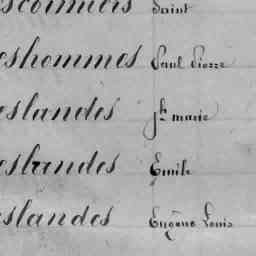 escormiers Saint
eshommes Paul Pierre
eslandes Jh marie
eslandes Emile
eslandes Eugène Louis